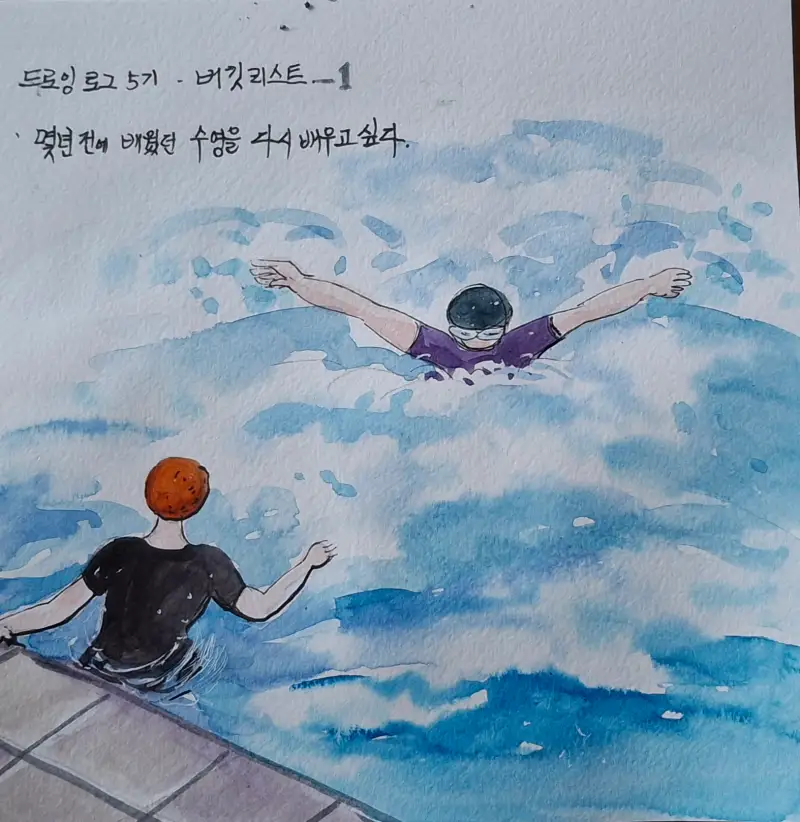 드로잉 로그 5기 - 버킷리스트 - 1
몇년 전에 배웠던 수영을 다시 배우고 싶다.